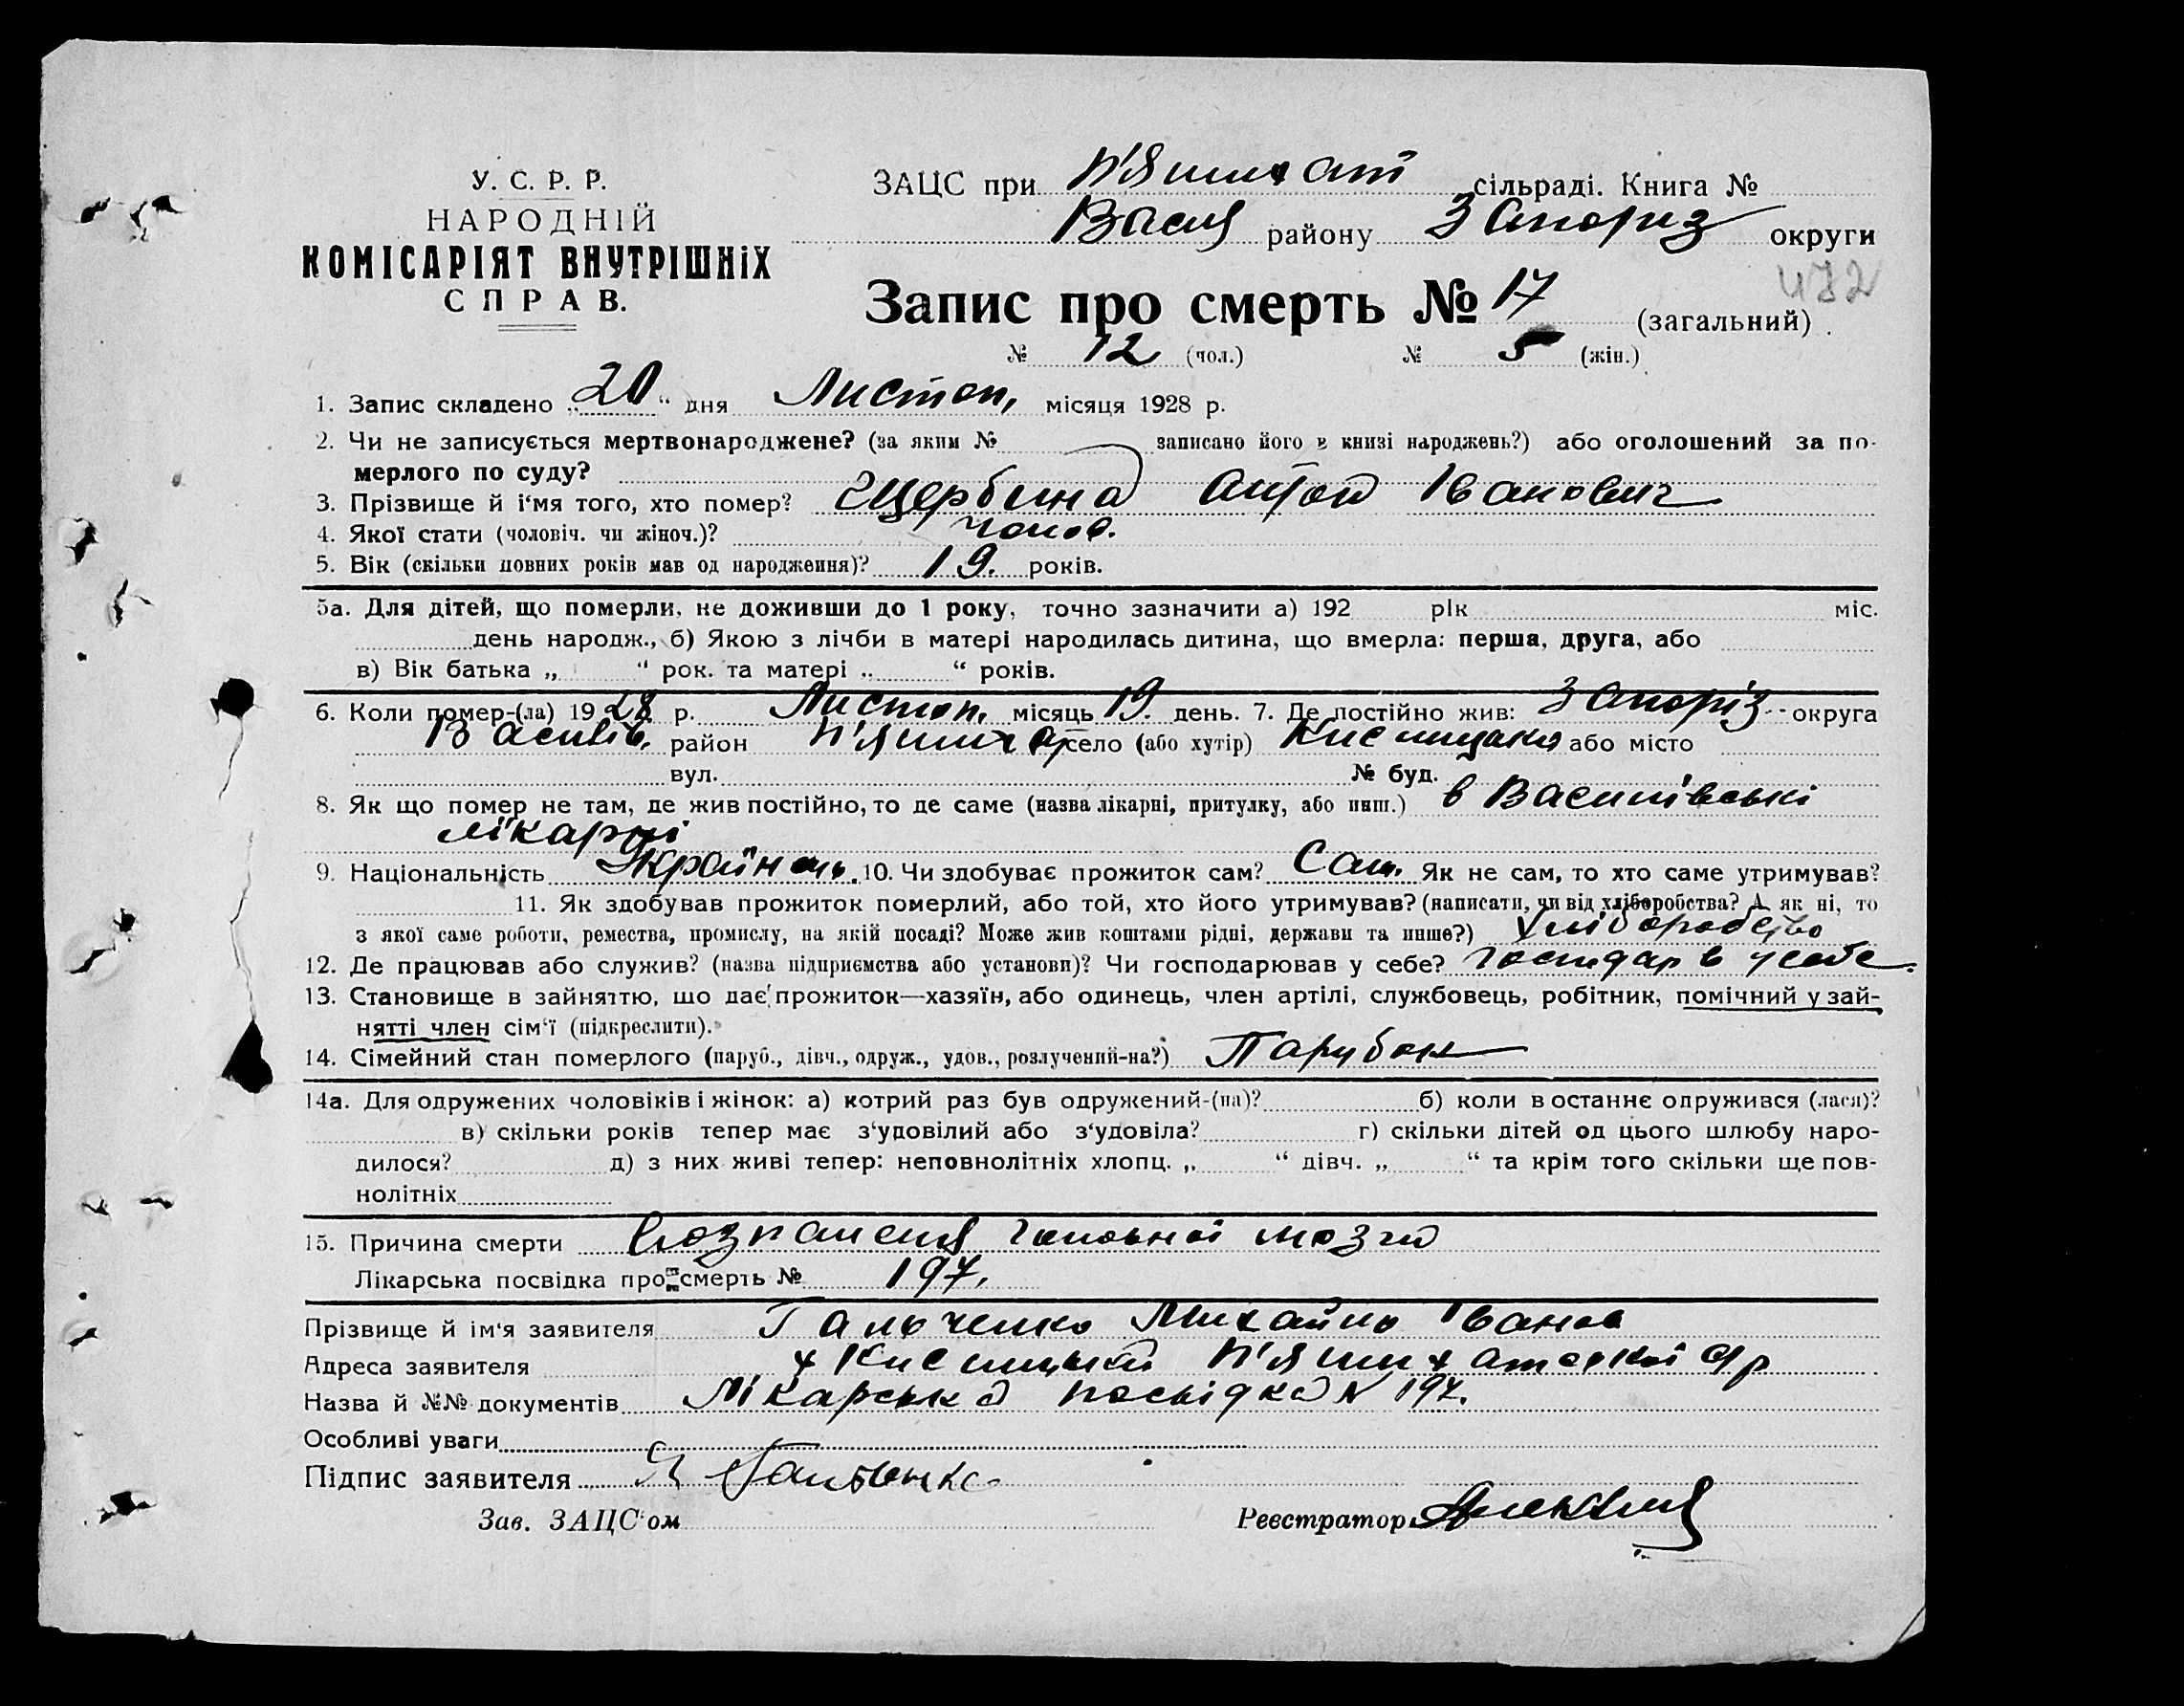 У. С. Р. Р.
НАРОДНІЙ
КОМІСАРІЯТ ВНУТРІШНІХ
СПРАВ.
ЗАЦС при П'ятихат сільраді. Книга №
Васил району Запоріз округи
472
Запис про смерть № 17 (загальний)
№ 12 (чол.) № 5 (жін.)
1. Запис складено „ 20 “ дня Листоп, місяця 1928 р.
2. Чи не записується мертвонароджене? (за яким № записано його в книзі народжень?) або оголошений за по-
мерлого по суду?
3. Прізвище й і‘мя того, хто помер? Щербина Антон Іванович
4. Якої стати (чоловіч. чи жіноч.)? чолов.
5. Вік (скільки повних років мав од народження)? 19. років.
5а. Для дітей, що померли, не доживши до 1 року, точно зазначити а) 192 рік міс.
день народж., б) Якою з лічби в матері народилась дитина, що вмерла: перша, друга, або
в) Вік батька „ “ рок. та матері „ “ років.
6. Коли помер-(ла) 1928 р. Листоп. місяць 19. день. 7. Де постійно жив: Запоріз округа
Василів. район П'ятихат село (або хутір) або місто
вул. № буд.
8. Як що помер не там, де жив постійно, то де саме (назва лікарні, притулку, або инш.) в Василівські
лікарні
9. Національність Українець. 10. Чи здобуває прожиток сам? Сам. Як не сам, то хто саме утримував?
11. Як здобував прожиток померлий, або той, хто його утримував? (написати, чи від хліборобства? А як ні, то
з якої саме роботи, ремества, промислу, на якій посаді? Може жив коштами рідні, держави та инше?) Хліборобство
12. Де працював або служив? (назва підприємства або установи)? Чи господарював у себе? Господар в у себе.
13. Становище в зайняттю, що дає прожиток—хазяїн, або одинець, член артілі, службовець, робітник, помічний у зай-
нятті член сім‘ї (підкреслити).
14. Сімейний стан померлого (паруб., дівч., одруж., удов., розлучений-на?) Парубок
14а. Для одружених чоловіків і жінок: а) котрий раз був одружений-(на)? б) коли в останнє одружився (лася)?
в) скільки років тепер має з‘удовілий або з‘удовіла? г) скільки дітей од цього шлюбу наро-
дилося? д) з них живі тепер: неповнолітніх хлопц. „ “ дівч. „ “ та крім того скільки ще пов-
нолітніх
15. Причина смерти головної мозги
Лікарська посвідка про смерть № 197.
Прізвище й ім‘я заявителя Гальченко Михайло Іванов
Адреса заявителя х П'ятихатської с/р
Назва й №№ документів Лікарська посвідка N 197.
Особливі уваги
Підпис заявителя
Зав. ЗАЦС‘ом Реєстратор